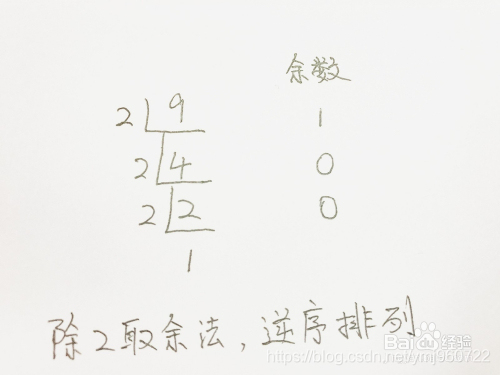 余数
2 9 1
2 4 0
2 2 0
1
除2取余法,逆序排列
Baidu经验
https://blog.csdn.net/ymj960722